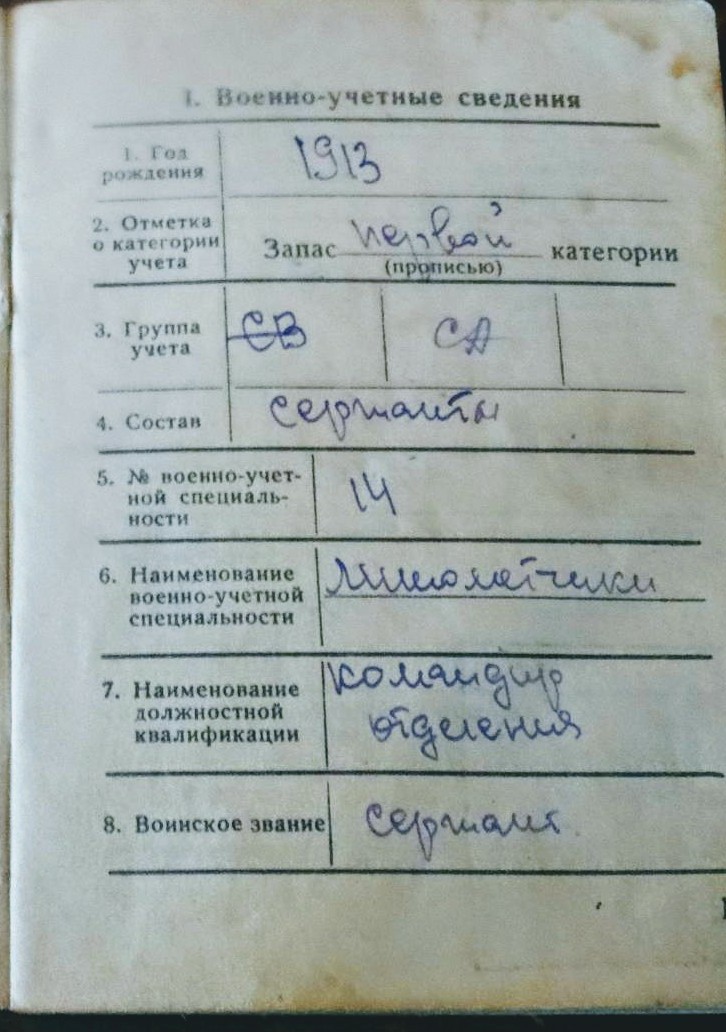 I. Военно-учетные сведения
1. Год
рождения
1913
2. Отметка
о категории
учета
Запас первой категории
(прописью)
3. Группа
учета
СВ СА
4. Состав
сержанты
5. № военно-учет-
ной специаль-
ности
14
6. Наименование
военно-учетной
специальности
Минометчики
7. Наименование
должностной
квалификации
командир
отделения
8. Воинское звание
сержант